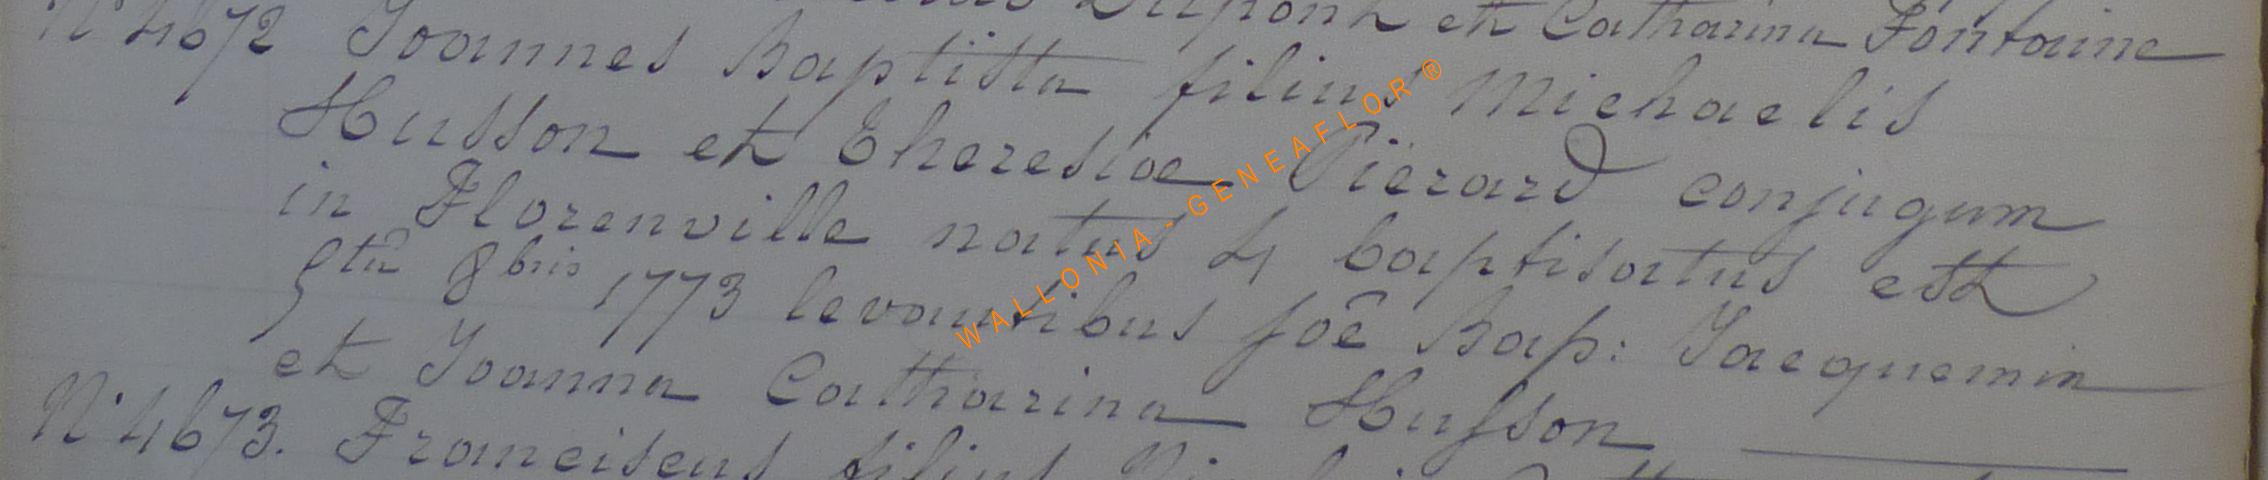 Dupont et Catharina Fontaine
N° 4672 Joannes Baptista filius Michaelis
Husson et Theresiae Piérard conjugum
in Florenville natus 4 baptisatus est
5ta 8bris 1773 levantibus Joê Bap: Jacquemin
et Joanna Catharina Husson
N° 4673. Franciscus filius
WALLONIA - GENEAFLOR ®